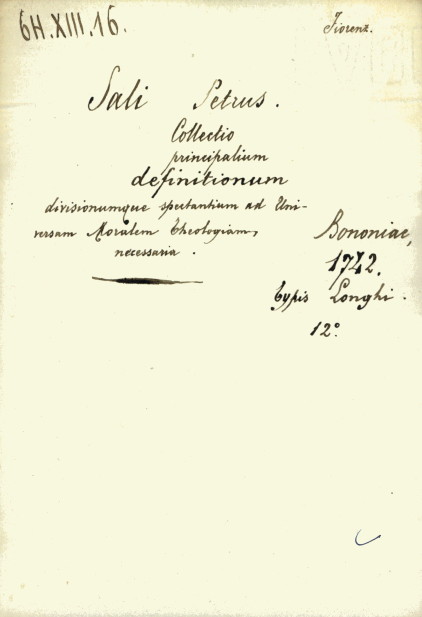 6H.XIII.16.
Fiorenz.
Sali Petrus.
Collectio
principalium
definitionum
divisionumque spectantium ad Uni-
versam Moralem Theologiam,
necessaria.
Bononiae,
1742.
Typis Longhi.
12°